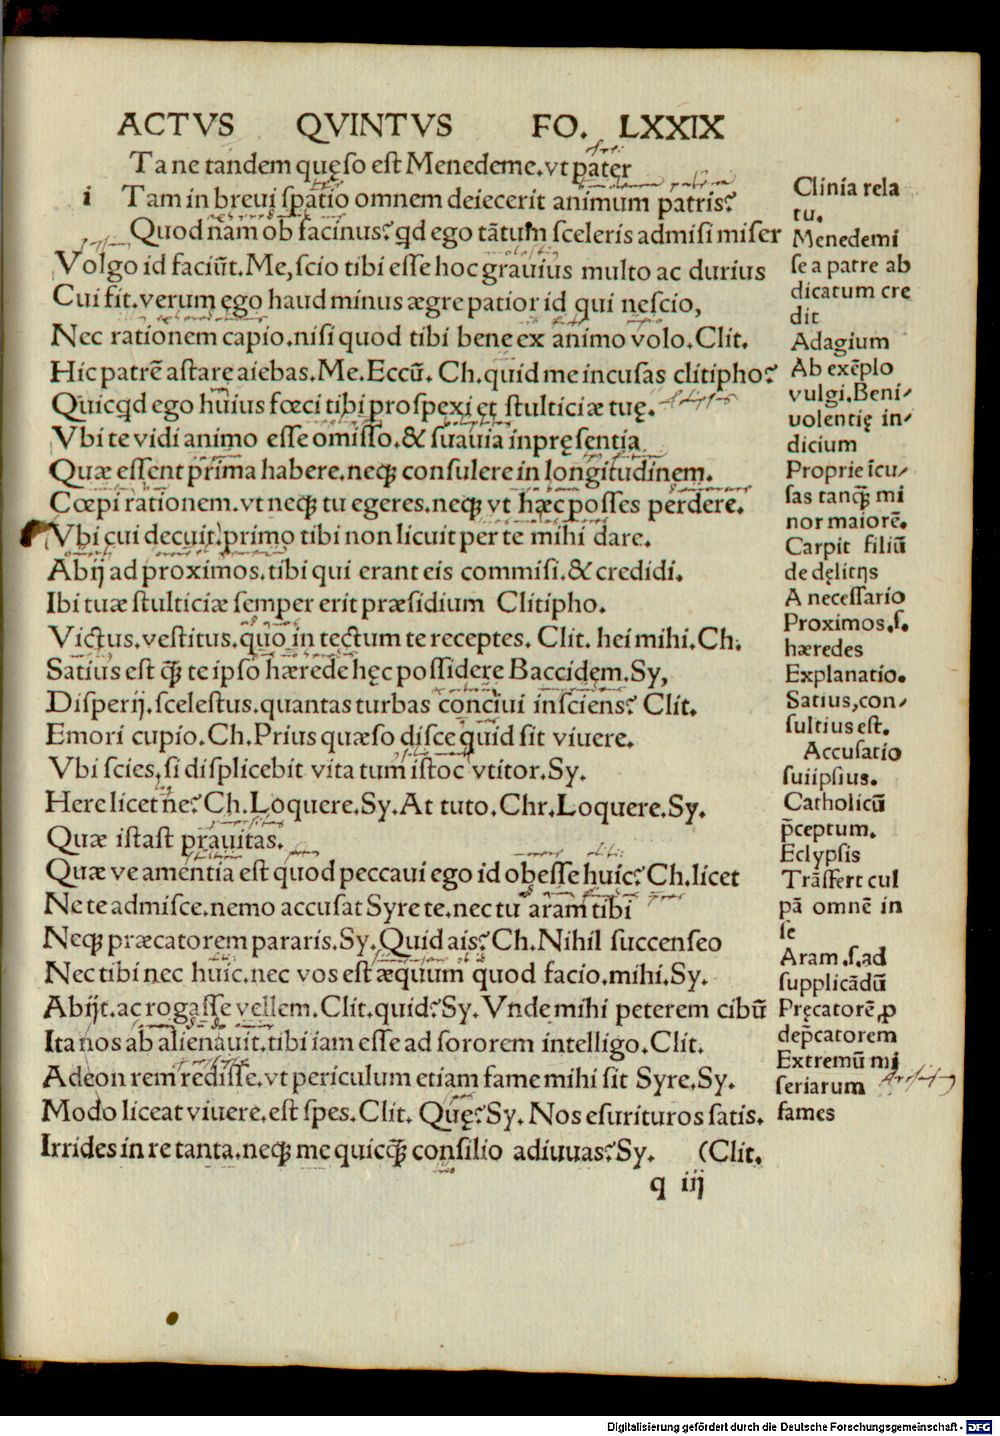 ACTVS QVINTVS FO. LXXIX
Ta ne tandem quęso est Menedeme.vt pater
i Tam in breui spatio omnem deiecerit animum patris?
Quod nam ob facinus? qd ego tātum sceleris admisi miser
Volgo id faciūt. Me, scio tibi esse hoc grauius multo ac durius
Cui fit.verum ego haud minus ægre patior id qui nescio,
Nec rationem capio.nisi quod tibi bene ex animo volo.Clit.
Hic patrē astare aiebas.Me.Eccū. Ch.quid me incusas clitipho?
Quicqd ego huius fœci tibi prospexi et stulticiæ tuę.
Vbi te vidi animo esse omisso.& suauia in pręsentia
Quæ essent prima habere.neqꝫ consulere in longitudinem.
Cœpi rationem.vt neqꝫ tu egeres.neqꝫ vt hæc posses perdere.
Vbi cui decuit.primo tibi non licuit per te mihi dare.
Abij ad proximos.tibi qui erant eis commisi.& credidi.
Ibi tuæ stulticiæ semper erit præsidium Clitipho.
Victus.vestitus.quo in tectum te receptes. Clit. hei mihi.Ch.
Satius est qꝫ̄ te ipso hærede hęc possidere Baccidem.Sy,
Disperij.scelestus.quantas turbas conciui insciens? Clit.
Emori cupio.Ch.Prius quæso disce quid sit viuere.
Vbi scies,si displicebit vita tum istoc vtitor.Sy.
Here licet ne? Ch.Loquere.Sy.At tuto.Chr.Loquere.Sy.
Quæ istast prauitas.
Quæ ve amentia est quod peccaui ego id obesse huic? Ch.licet
Ne te admisce.nemo accusat Syre te.nec tu aram tibi
Neqꝫ præcatorem pararis.Sy.Quid ais? Ch.Nihil succenseo
Nec tibi nec huic.nec vos est æquum quod facio.mihi.Sy.
Abijt.ac rogasse vellem.Clit.quid? Sy. Vnde mihi peterem cibū
Ita nos ab alienauit.tibi iam esse ad sororem intelligo.Clit.
Adeon rem redisse.vt periculum etiam fame mihi sit Syre.Sy.
Modo liceat viuere.est spes.Clit. Quę? Sy. Nos esurituros satis.
Irrides in re tanta.neqꝫ me quicqꝫ̄ consilio adiuuas? Sy. (Clit.
q iij
Clinia rela
tu.
Menedemi
se a patre ab
dicatum cre
dit
Adagium
Ab exēplo
vulgi.Beni/
uolentię in/
dicium
Proprie īcu/
sas tanqꝫ̄ mi
nor maiorē.
Carpit filiū
de delitijs
A necessario
Proximos.s.
hæredes
Explanatio.
Satius,con/
sultius est.
Accusatio
suiipsius.
Catholicū
p̄ceptum.
Eclypsis
Trāsfert cul
pā omnē in
se
Aram.s.ad
supplicādū
Pręcatorē ꝓ
dep̄catorem
Extremū mi
seriarum
fames
Digitalisierung gefördert durch die Deutsche Forschungsgemeinschaft - DFG